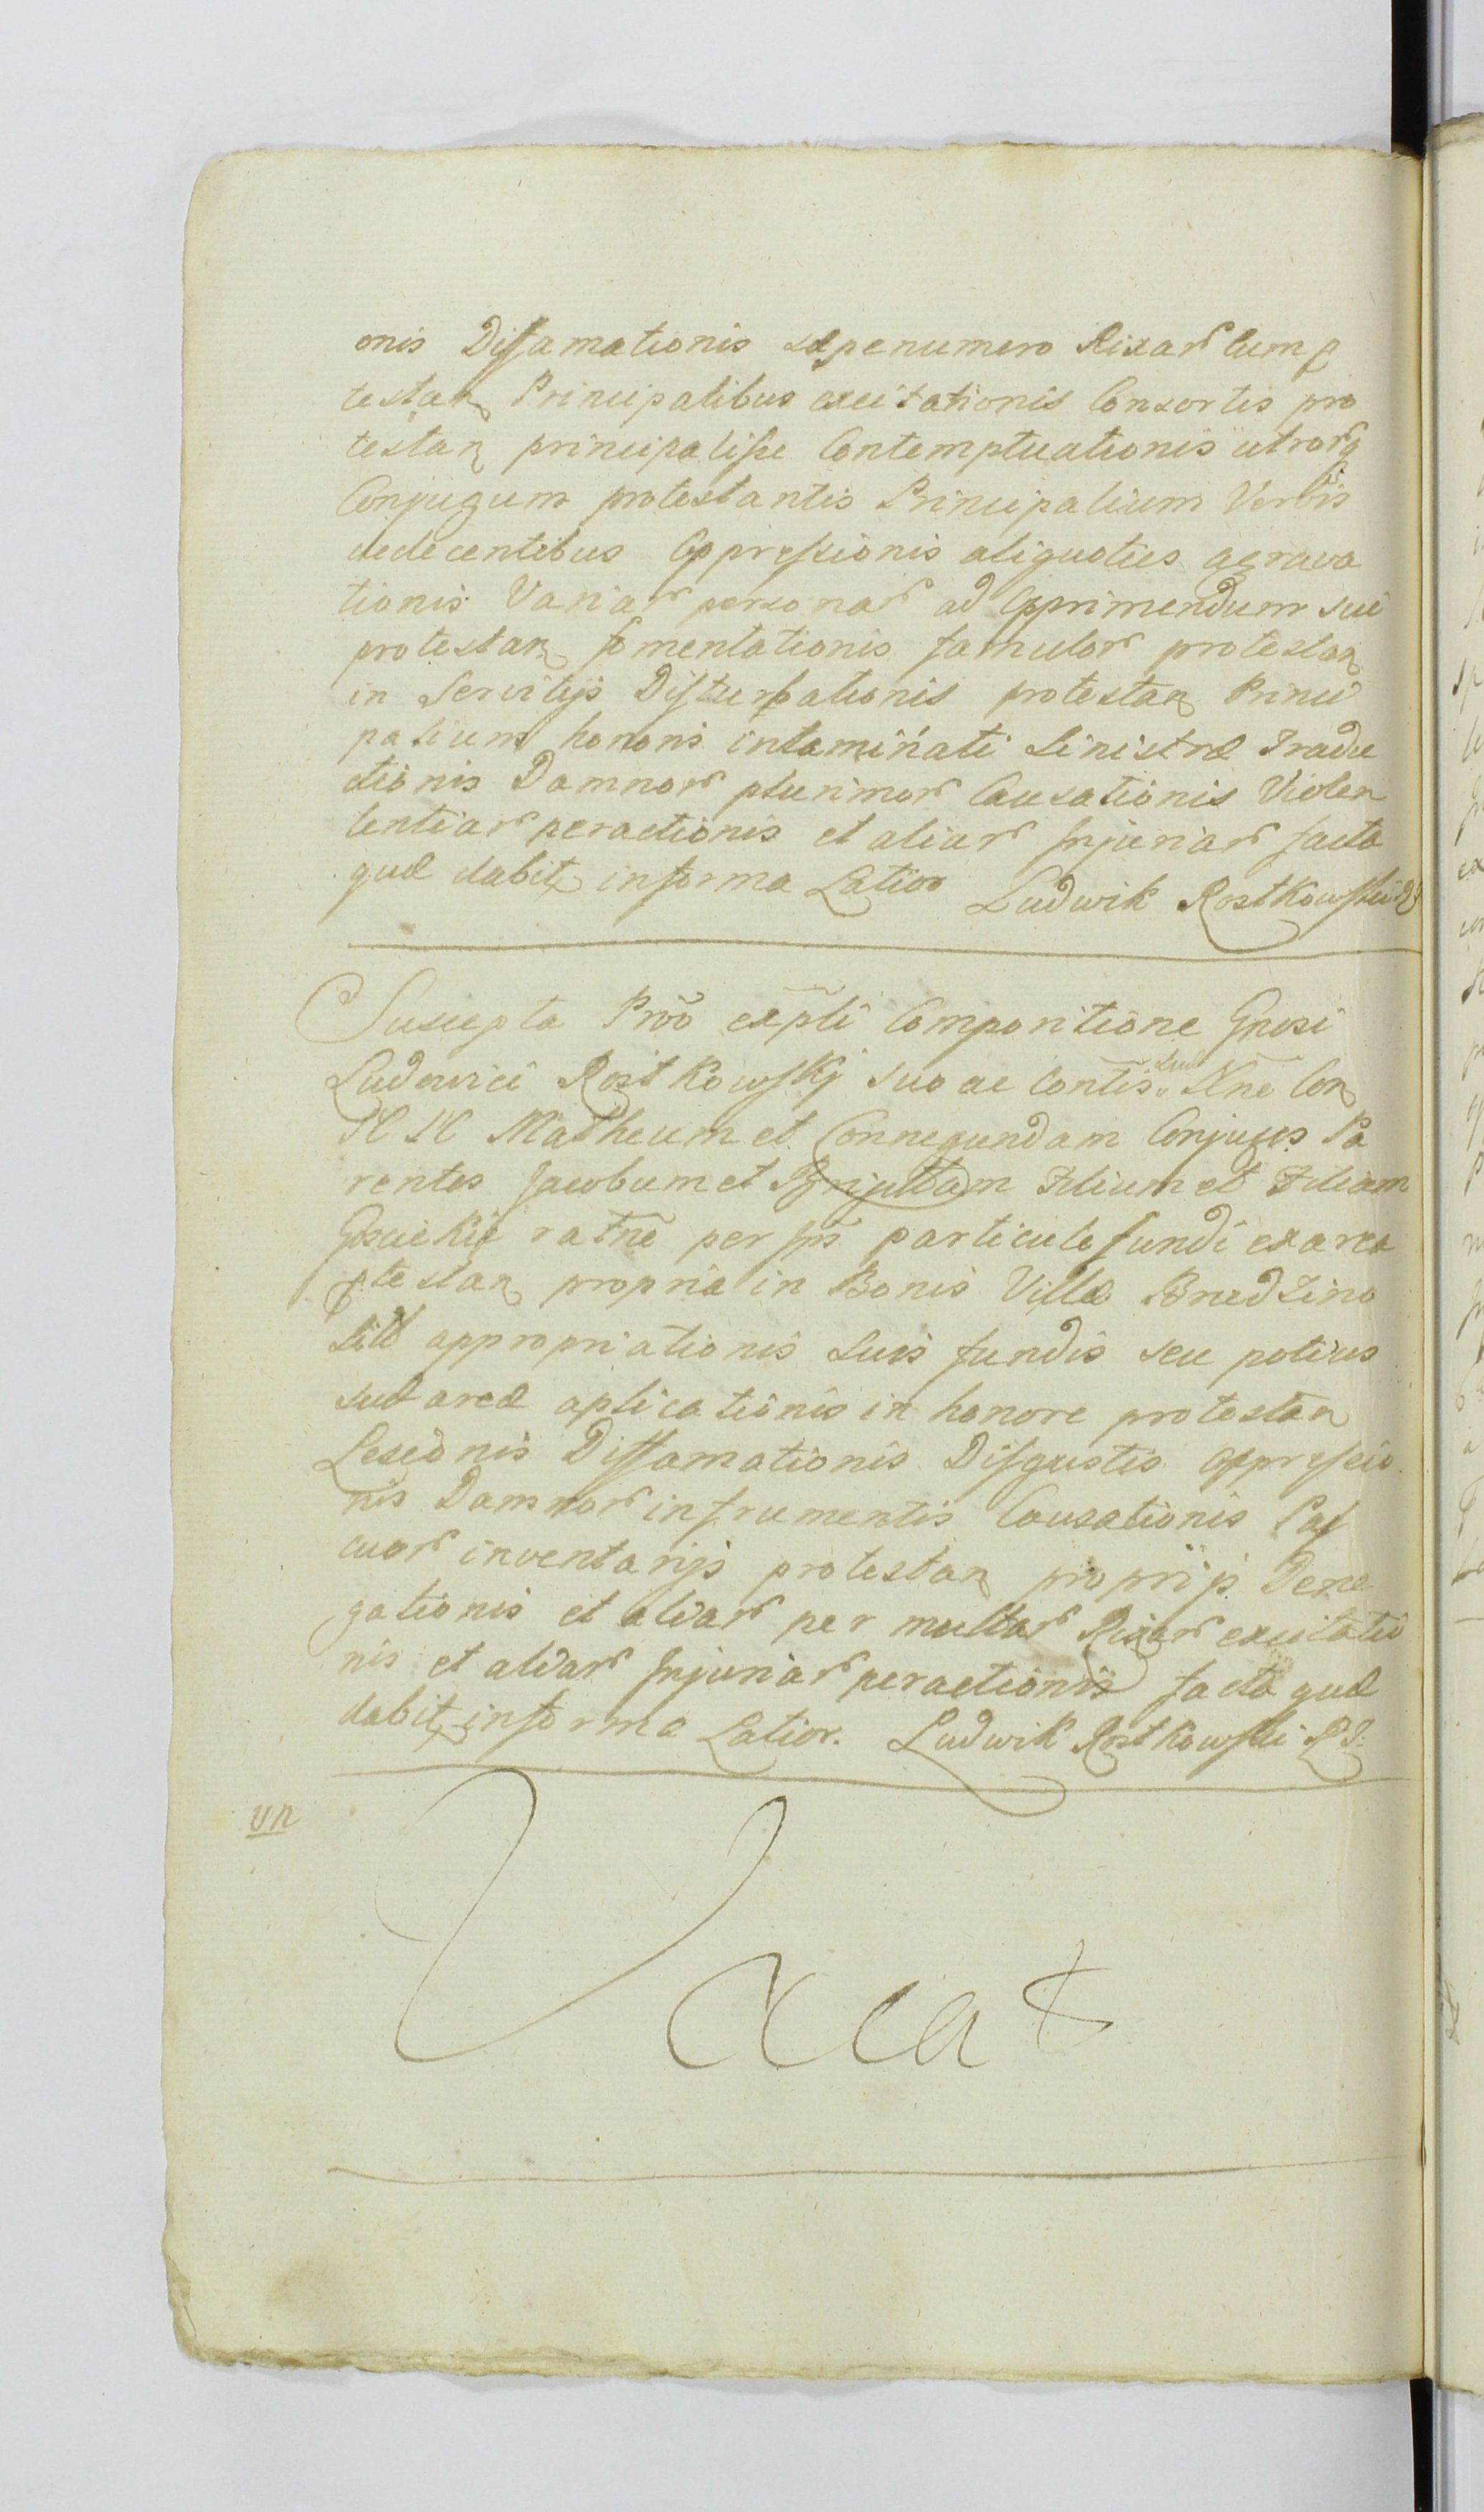 onis Diffamationis sæpenumero Rixar cum p
testan Principalibus excitationis Consortis pro
testan principalise Contemptuationis utrorq
Conjugum protestantis Principalium Verbis
dedecentibus Oppressionis aliquoties agrava
tionis Variar personar ad Opprimendum sui
protestan fomentationis famulor protestan
in Servitijs Disturbationis protestan Princi
palium honoris intaminati Sinistræ Tradu
ctionis Damnor plurimor Causationis Violen
tentiar peractionis et aliar Injuriar facta
quæ dabit informa Latior Ludwik Rostkowski
Suscepta Prõo expli Compositione Gnosi
Ludovici Rostkowskj suo ac Contis suæ Nne Con
Matheum et Connegundam Conjuges Pa
rentes Jacobum et Brigittam Filium et Filiam
ratne per Ips particule fundi ex area
ptestan propria in Bonis Villæ Brzedzino
appropriationis suis fundis seu potius
suæ areæ aplicationis in honore protestan
Lesionis Diffamationis Disgustis oppressio
nis Damnor in frumentis Causationis Pas
cuor inventarijs protestan proprijs Dene
gationis et aliar per multar Rixar excitatio
nis et aliar Injuriar peractionis facta quæ
dabit informa Latior. Ludwik Rostkowski
Vacat